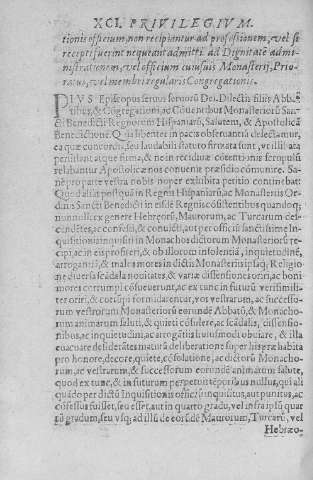 XCI. PRIVILEGIVM.
tionis officium non recipiantur ad professionem, vel si
recepti fuerint nequeant admitti ad Dignitatē admi-
nistrationem, vel officium cuiusuis Monasterij, Prio-
ratus, vel membri regularis Congregationis.
PIVS Episcopus seruus seruorū Dei. Dilectis filiis Abba-
tibus, & Cōgregationi, ac Cōuentibus Monasteriorū San-
cti Benedicti Regnorum Hispaniarū, Salutem, & Apostolicā
Benedictionē. Qui libenter in pacis obseruantia delectamur,
ea quæ concordi, seu laudabili statuto firmata sunt, vt illibata
persistant atque firma, & ne in recidiuæ cōtentionis scrupulū
relabantur Apostolicæ nos conuenit præsidio cōmunire. Sa-
nè pro parte vestra nobis noper exhibita petitio continebat:
Que dal ias postquā in Regnis Hispaniarū, ac Monasteriis Or-
dinis Sancti Benedicti in eisdē Regnis cōsistentibus quandoq;
nonnulli ex genere Hebręorū, Maurorum, ac Turcarum des-
cendētes, ac confessi, & conuicti, aut per officiū sanctissimę In-
quisitionis inquisiti in Monachos dictorum Monasteriorū re-
cipi, ac in eis profiteri, & ob illorum insolentiā, inquietudinē,
arrogantiā, & malos mores in dictis Monasteriis ipsaq; Religio
ne diuersa scādala nouitates, & variæ dissensiones oriri, ac boni
mores corrumpi cōsueuerunt, ac ex tunc in futurū verisimili-
ter oriri, & corrūpi formidarentur, vos vestrarum, ac successo-
rum vestrorum Monasteriorū eorundē Abbatū, & Monacho-
rum animarum saluti, & quieti cōsulere, ac scādalis, dissensio-
nibus, ac inquietudini, ac arrogātiis huiusmodi obuiare, & illa
euacuare desiderātes matura deliberatione super his era habita
pro honore, decore, quiete, cōsolatione, ac dictorū Monacho-
rum, ac vestrarum, & successorum eorundē animarum salute,
quod ex tunc, & in futurum perpetuis tēporibus nullus, qui ali
quādo per dictū Inquisitionis officiū inquisitus, aut punitus, ac
cōfessus fuisset, seu esset, aut in quarto gradu, vel infra ipsū quar
tū gradum, seu vsq; ad illū de eorūdē Maurorum, Turcarū, vel
Hebræo-